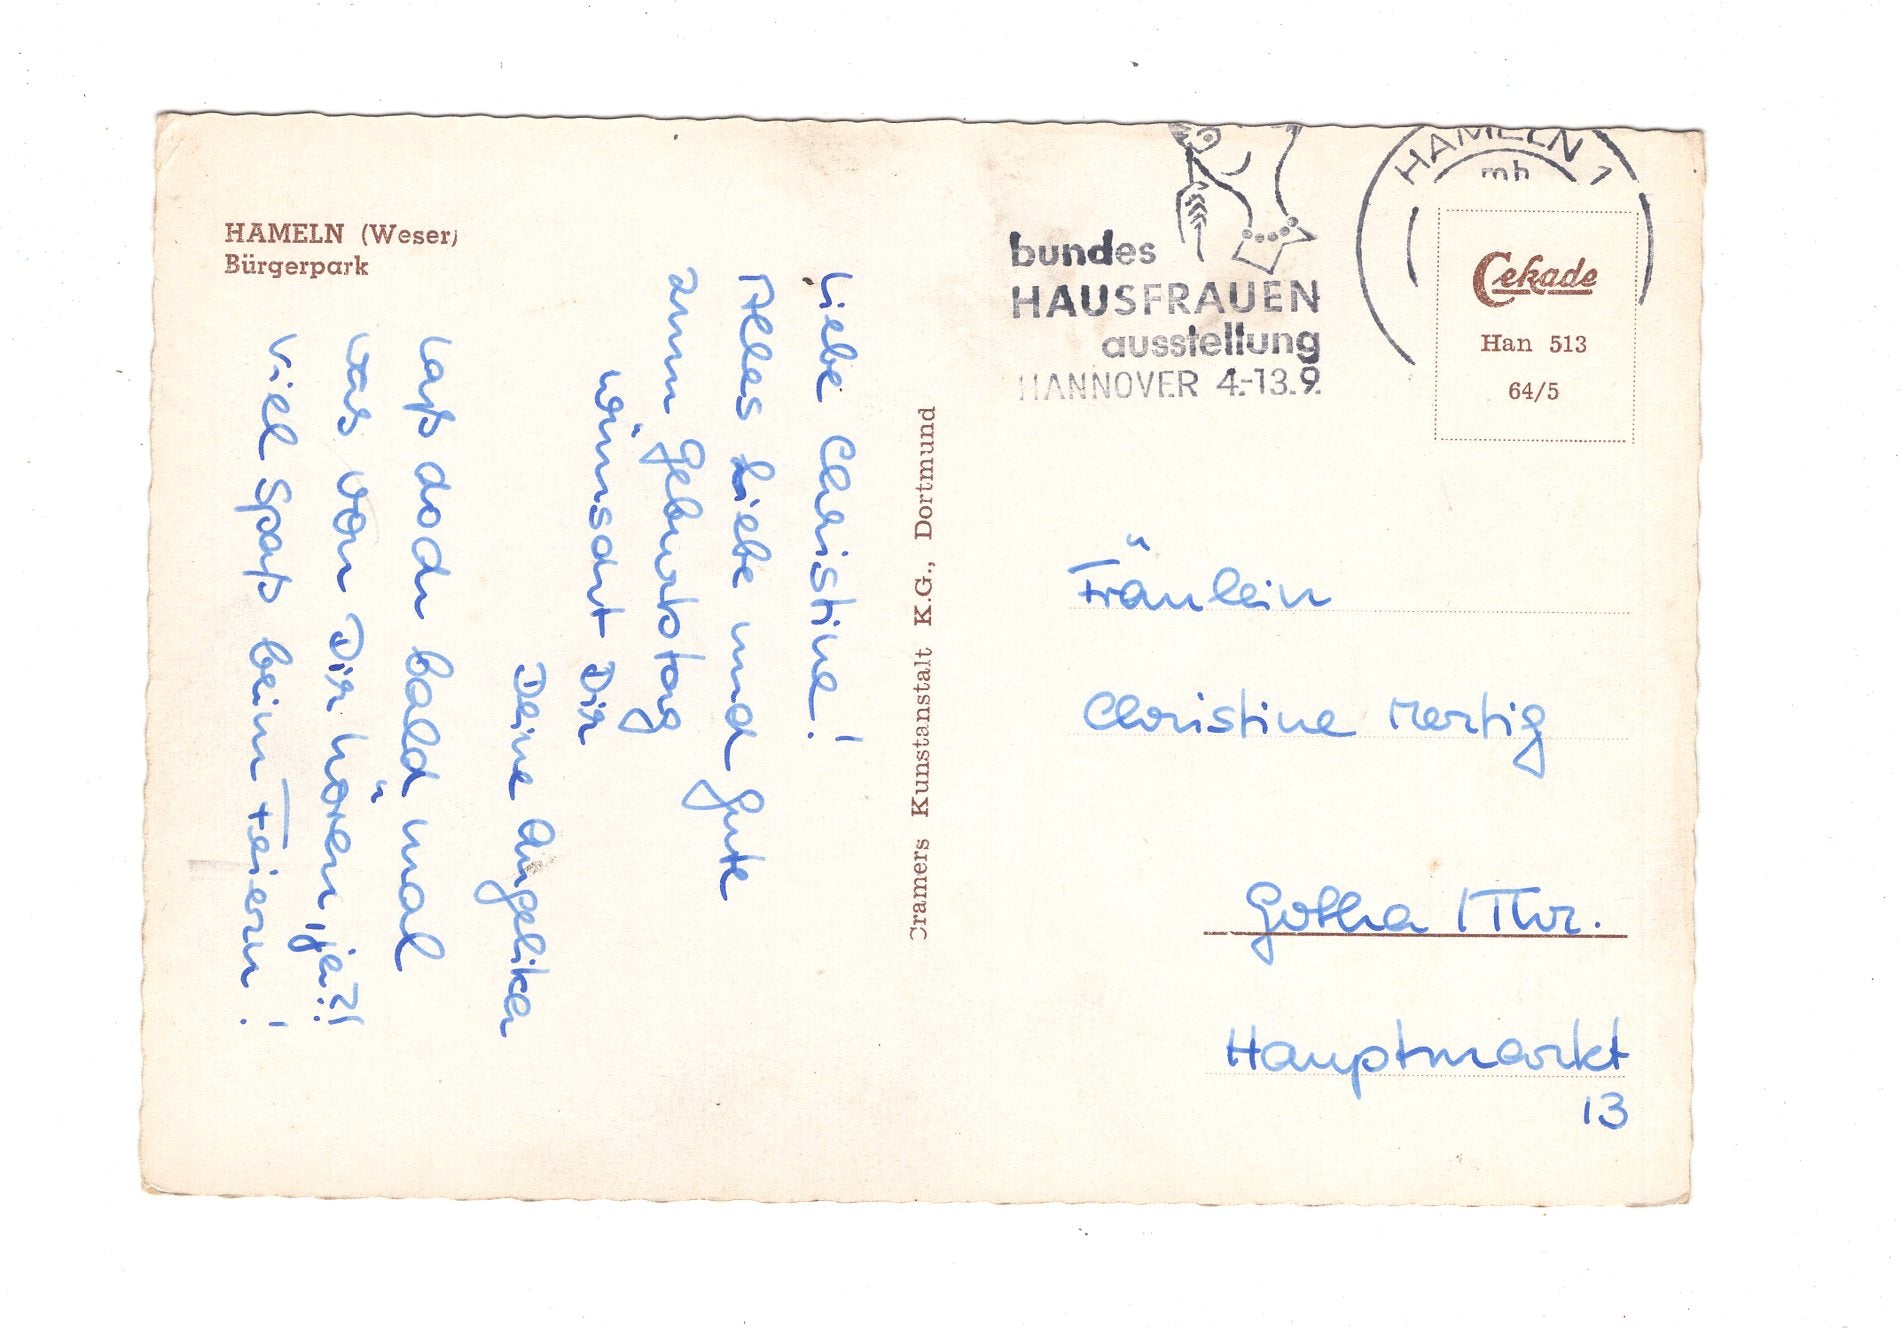 HAMELN (Weser)
Bürgerpark
Liebe Christine!
Alles Liebe und Gute
zum Geburtstag
wünscht Dir
Deine Angelika
Laß doch bald mal
was von Dir hören, ja?!
Viel Spaß beim Feiern!
Cramers Kunstanstalt K.G., Dortmund
bundes
HAUSFRAUEN
ausstellung
HANNOVER 4.-13.9
HAMELN 1
mh
Cekade
Han 513
64/5
Fräulein
Christine Mertig
Gotha / Thür.
Hauptmarkt
13